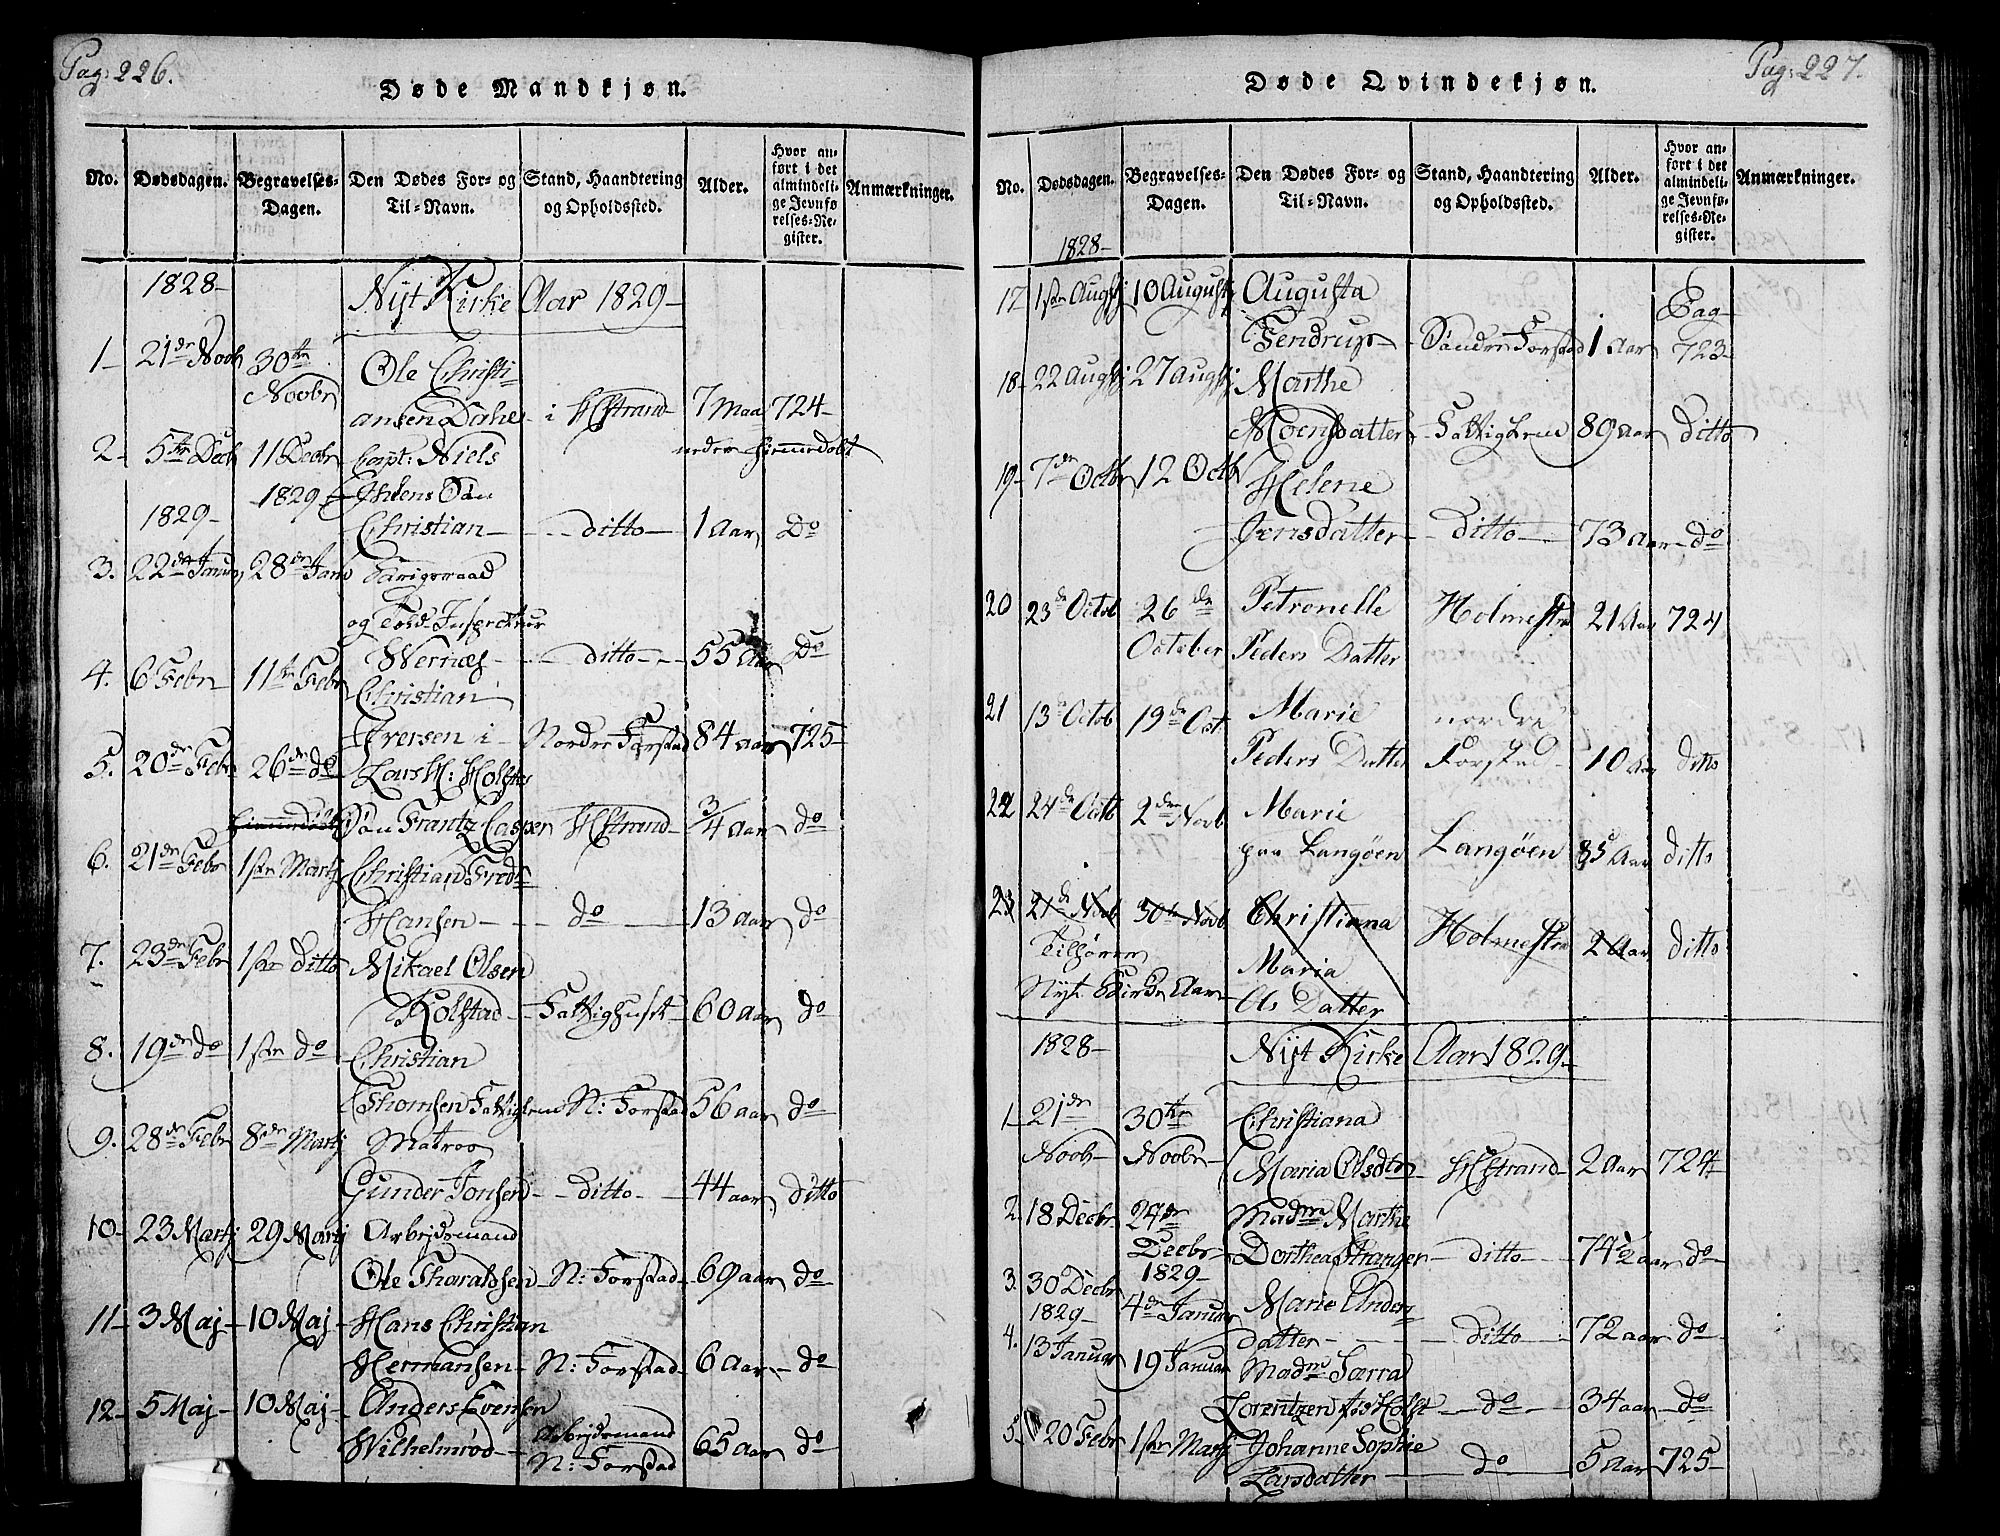 Pag: 226.
Døde Mandkjøn.
No. Dødsdagen. Begravelses-Dagen. Den Dødes For- og Til-Navn. Stand, Haandtering og Opholdssted. Alder. Hvor anført i det almindelige Jevnførelses-Register. Anmærkninger.
1828- Nyt Kirke Aar 1829-
1- 21de Novb 30te Ole Christi-
Novbr ansen - i HStrand- 7 Maa 724-
2- 5te Decb 11 Decbr Capt: Niels
1829- Ihlens Søn
1829- Christian - ditto - 1 Aar Do
3. 22de Janua 28de Janu
og Told-Inspecteur
Wernes - ditto - 55 Aar Do
4. 6 Febr 11te Febr Christian
Iversen i - Nordre Forstad 84 aar 725-
5. 20de Febr 26de do Lars H: Holsts
Søn Frantz Casper HStrand- 3/4 Aar do
6. 21de Febr 1ste Martj Christian Fredr
Hansen - do - 13 aar do
7. 23de Febr 1ste ditto Mikael Olsen
Kolstad - Fattighuset - 60 aar do
8. 19de do 1ste do Christian
Thomsen Fattiglem N: Forstad 56 aar do
9. 28de Febr 8de Martj Matros
Gunder Jonsen - ditto - 44 aar ditto
10- 23 Martj 29 Martj Arbejdsmand
Ole Tharaldsen - N: Forstad - 69 aar do
11- 3 Maj - 10 Maj - Hans Christian
Hermansen - N: Forstad - 6 Aar - do
12- 5 Maj - 10 Maj - Anders Evensen
Wilhelmrød - Arbejdsmand N: Forstad 65 aar do
Pag: 227.
Døde Qvindekjøn.
No. Dødsdagen. Begravelses-Dagen. Den Dødes For- og Til-Navn. Stand, Haandtering og Opholdssted. Alder. Hvor anført i det almindelige Jevnførelses-Register. Anmærkninger.
1828-
17 1ste Augstj 10 Augustj Augusta Pag-
Fendrup - Søndre Forstad 1 Aar 723-
18- 22 Augstj 27 Augstj Marthe
Moensdatter - Fattiglem 89 aar ditto
19- 7de Octbr 12 Octb Helene
Jensdatter - ditto - 73 aar - do
20 23de Octob 26de Petronelle Holmestra 21 Aar 724
October Peders Datter
21 13de Octob 19de Oct. Marie nordre
Peders Datter Forstad 10 Aar ditto
22 24de Octb 2den Novb Marie
paa Langøen Langøen 85 Aar ditto
23 21de Novb 30te Novb Christianna Holmestra 2 Aar ditto
Tilhører Maria
Nyt Kirke Aar - Ols Datter
1828- Nyt Kirke Aar 1829-
1- 21de 30te Christiana
Novb- Novbr- Maria Olsdtr - HStrand - 2 Aar 724-
2. 18 Decbr 24de Madme Marthe
Decbr- Dorthea Stranger - ditto - 74 1/2 aar do
3. 30 Decbr 1829-
1829- 4de Januar Marie Anders
datter - ditto - 72 aar do
4. 13 Januar 19 Januar Madme Sarra
Lorentzen fød Holst - do - 34 aar - do
5- 20 Febr 1ste Martj Johanne Sophie
Larsdatter - do - 5 Aar 725-